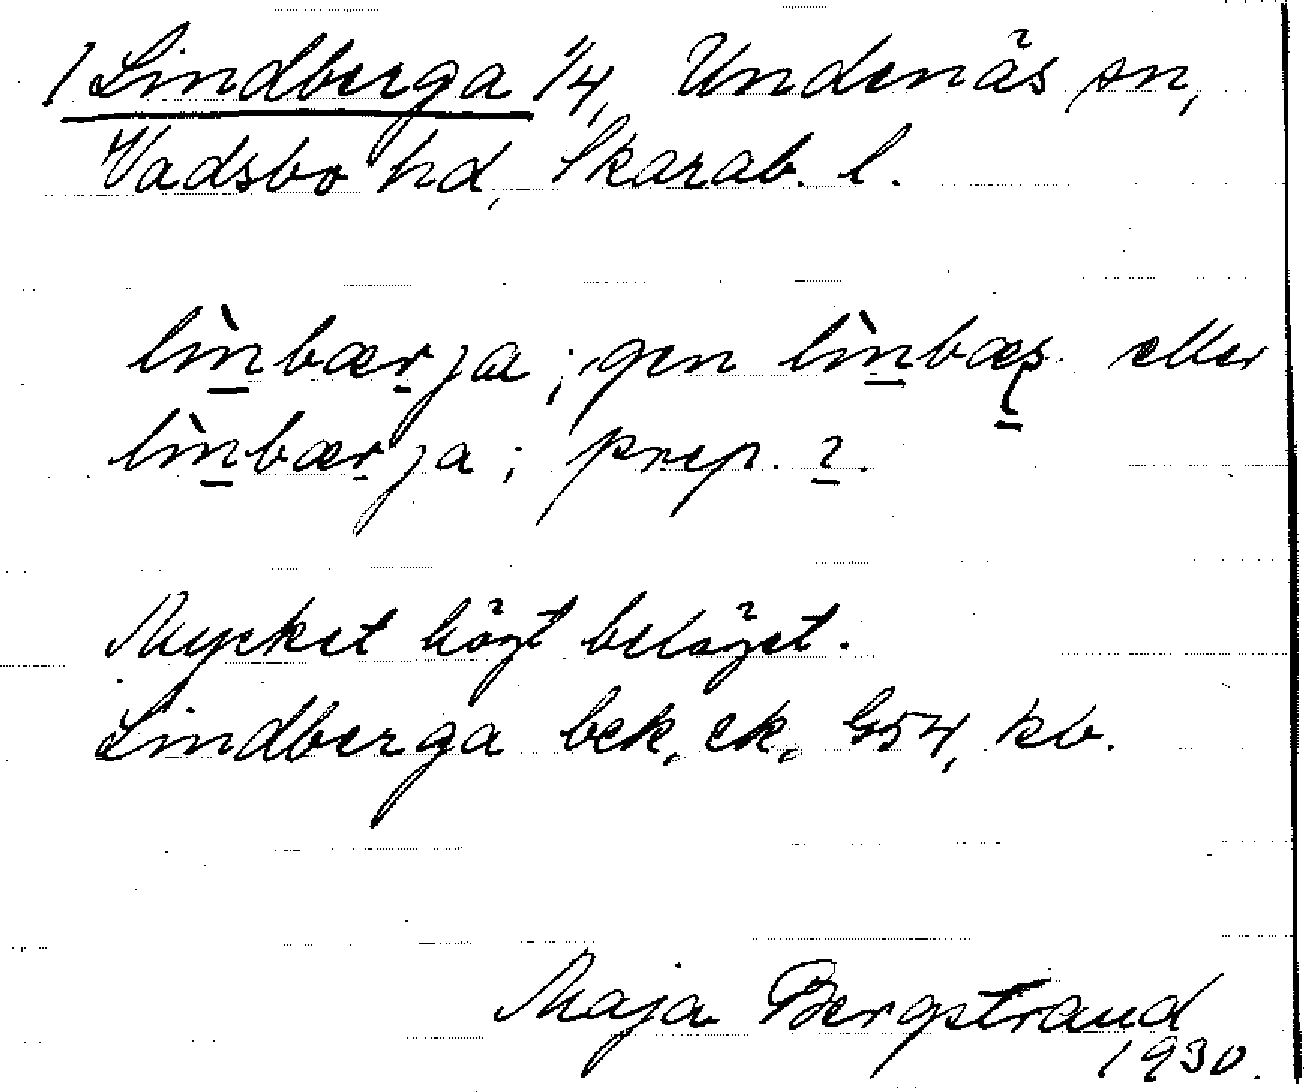 1 Lindberga 1/4, Undenäs sn,
Vadsbo hd, Skarab. l.
lìnbærja; gen lìnbæs. eller
lìnbærja; prep. 2.
Mycket högt beläget.
Lindberga bek. ek. G54, kb.
Maja Bergstrand
1930.